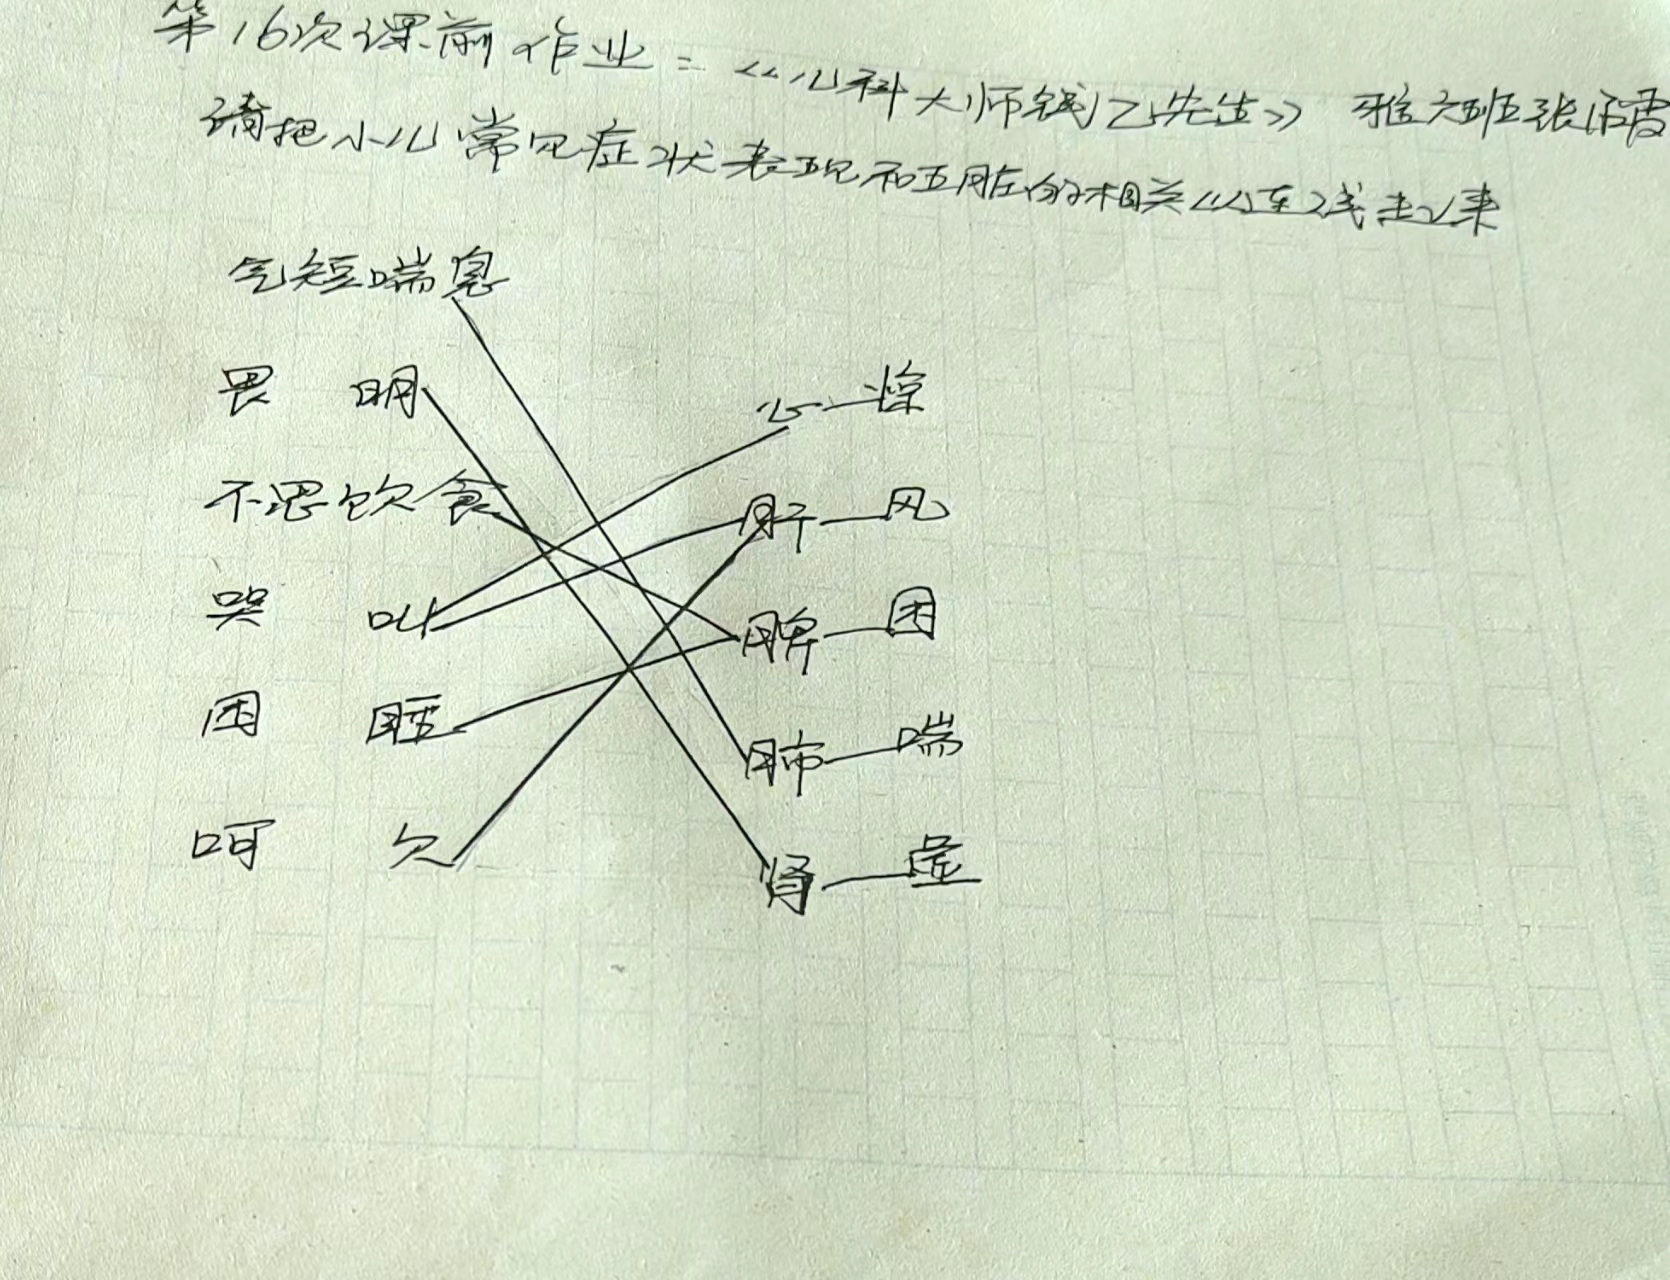 第16次课前作业:《儿科大师钱乙先生》 雅六班张
请把小儿常见症状表现和五脏的相关以连线走过来
气短喘息
畏 明
心—惊
不思饮食
肝—风
哭 叫
脾—困
困 睡
肺—喘
呵 欠
肾—虚